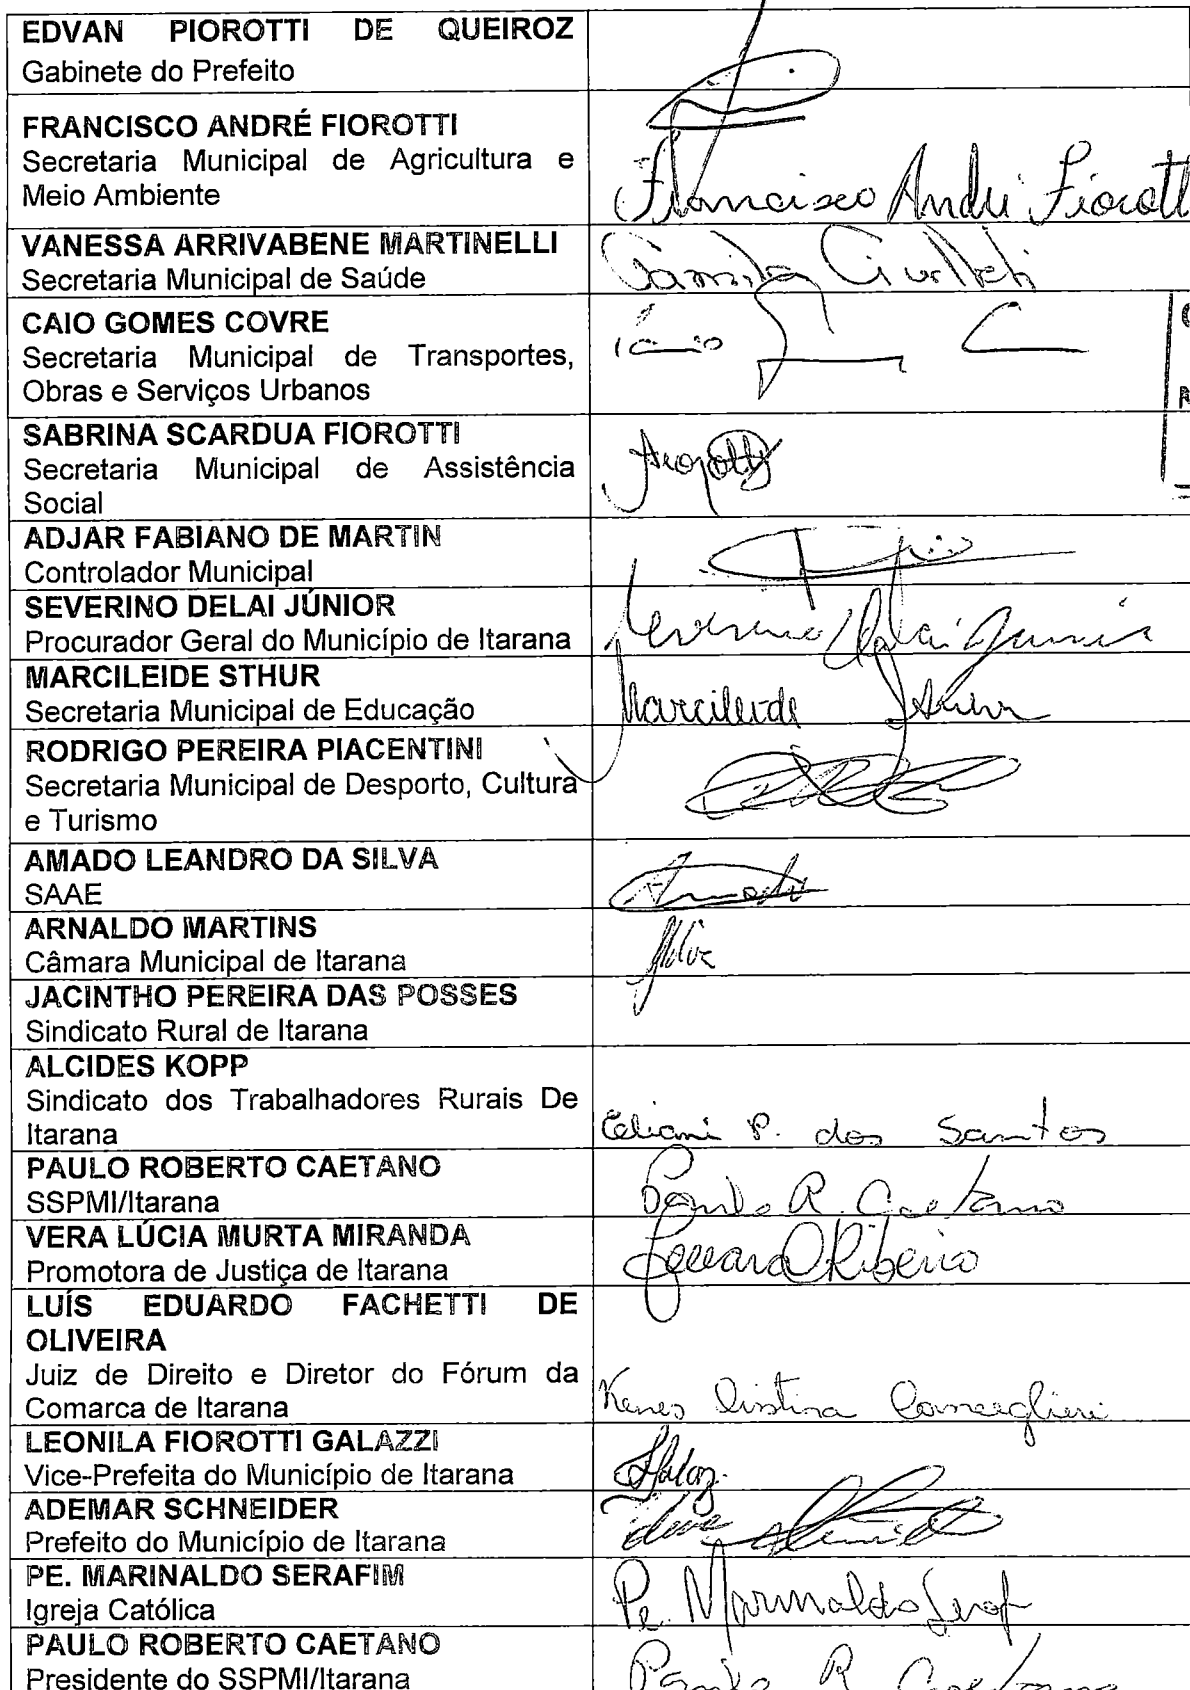 EDVAN PIOROTTI DE QUEIROZ
Gabinete do Prefeito
FRANCISCO ANDRÉ FIOROTTI
Secretaria Municipal de Agricultura e
Meio Ambiente
Francisco André Fiorott
VANESSA ARRIVABENE MARTINELLI
Secretaria Municipal de Saúde
Camila
CAIO GOMES COVRE
Secretaria Municipal de Transportes,
Obras e Serviços Urbanos
Caio
SABRINA SCARDUA FIOROTTI
Secretaria Municipal de Assistência
Social
ADJAR FABIANO DE MARTIN
Controlador Municipal
SEVERINO DELAI JÚNIOR
Procurador Geral do Município de Itarana
Severino Delai Junior
MARCILEIDE STHUR
Secretaria Municipal de Educação
Marcileide Sthur
RODRIGO PEREIRA PIACENTINI
Secretaria Municipal de Desporto, Cultura
e Turismo
AMADO LEANDRO DA SILVA
SAAE
Amado
ARNALDO MARTINS
Câmara Municipal de Itarana
JACINTHO PEREIRA DAS POSSES
Sindicato Rural de Itarana
ALCIDES KOPP
Sindicato dos Trabalhadores Rurais De
Itarana
Celiani P. dos Santos
PAULO ROBERTO CAETANO
SSPMI/Itarana
Paulo R. Caetano
VERA LÚCIA MURTA MIRANDA
Promotora de Justiça de Itarana
Ribeiro
LUÍS EDUARDO FACHETTI DE
OLIVEIRA
Juiz de Direito e Diretor do Fórum da
Comarca de Itarana
LEONILA FIOROTTI GALAZZI
Vice-Prefeita do Município de Itarana
ADEMAR SCHNEIDER
Prefeito do Município de Itarana
PE. MARINALDO SERAFIM
Igreja Católica
Pe. Marinaldo Seraf
PAULO ROBERTO CAETANO
Presidente do SSPMI/Itarana
Paulo R Caetano